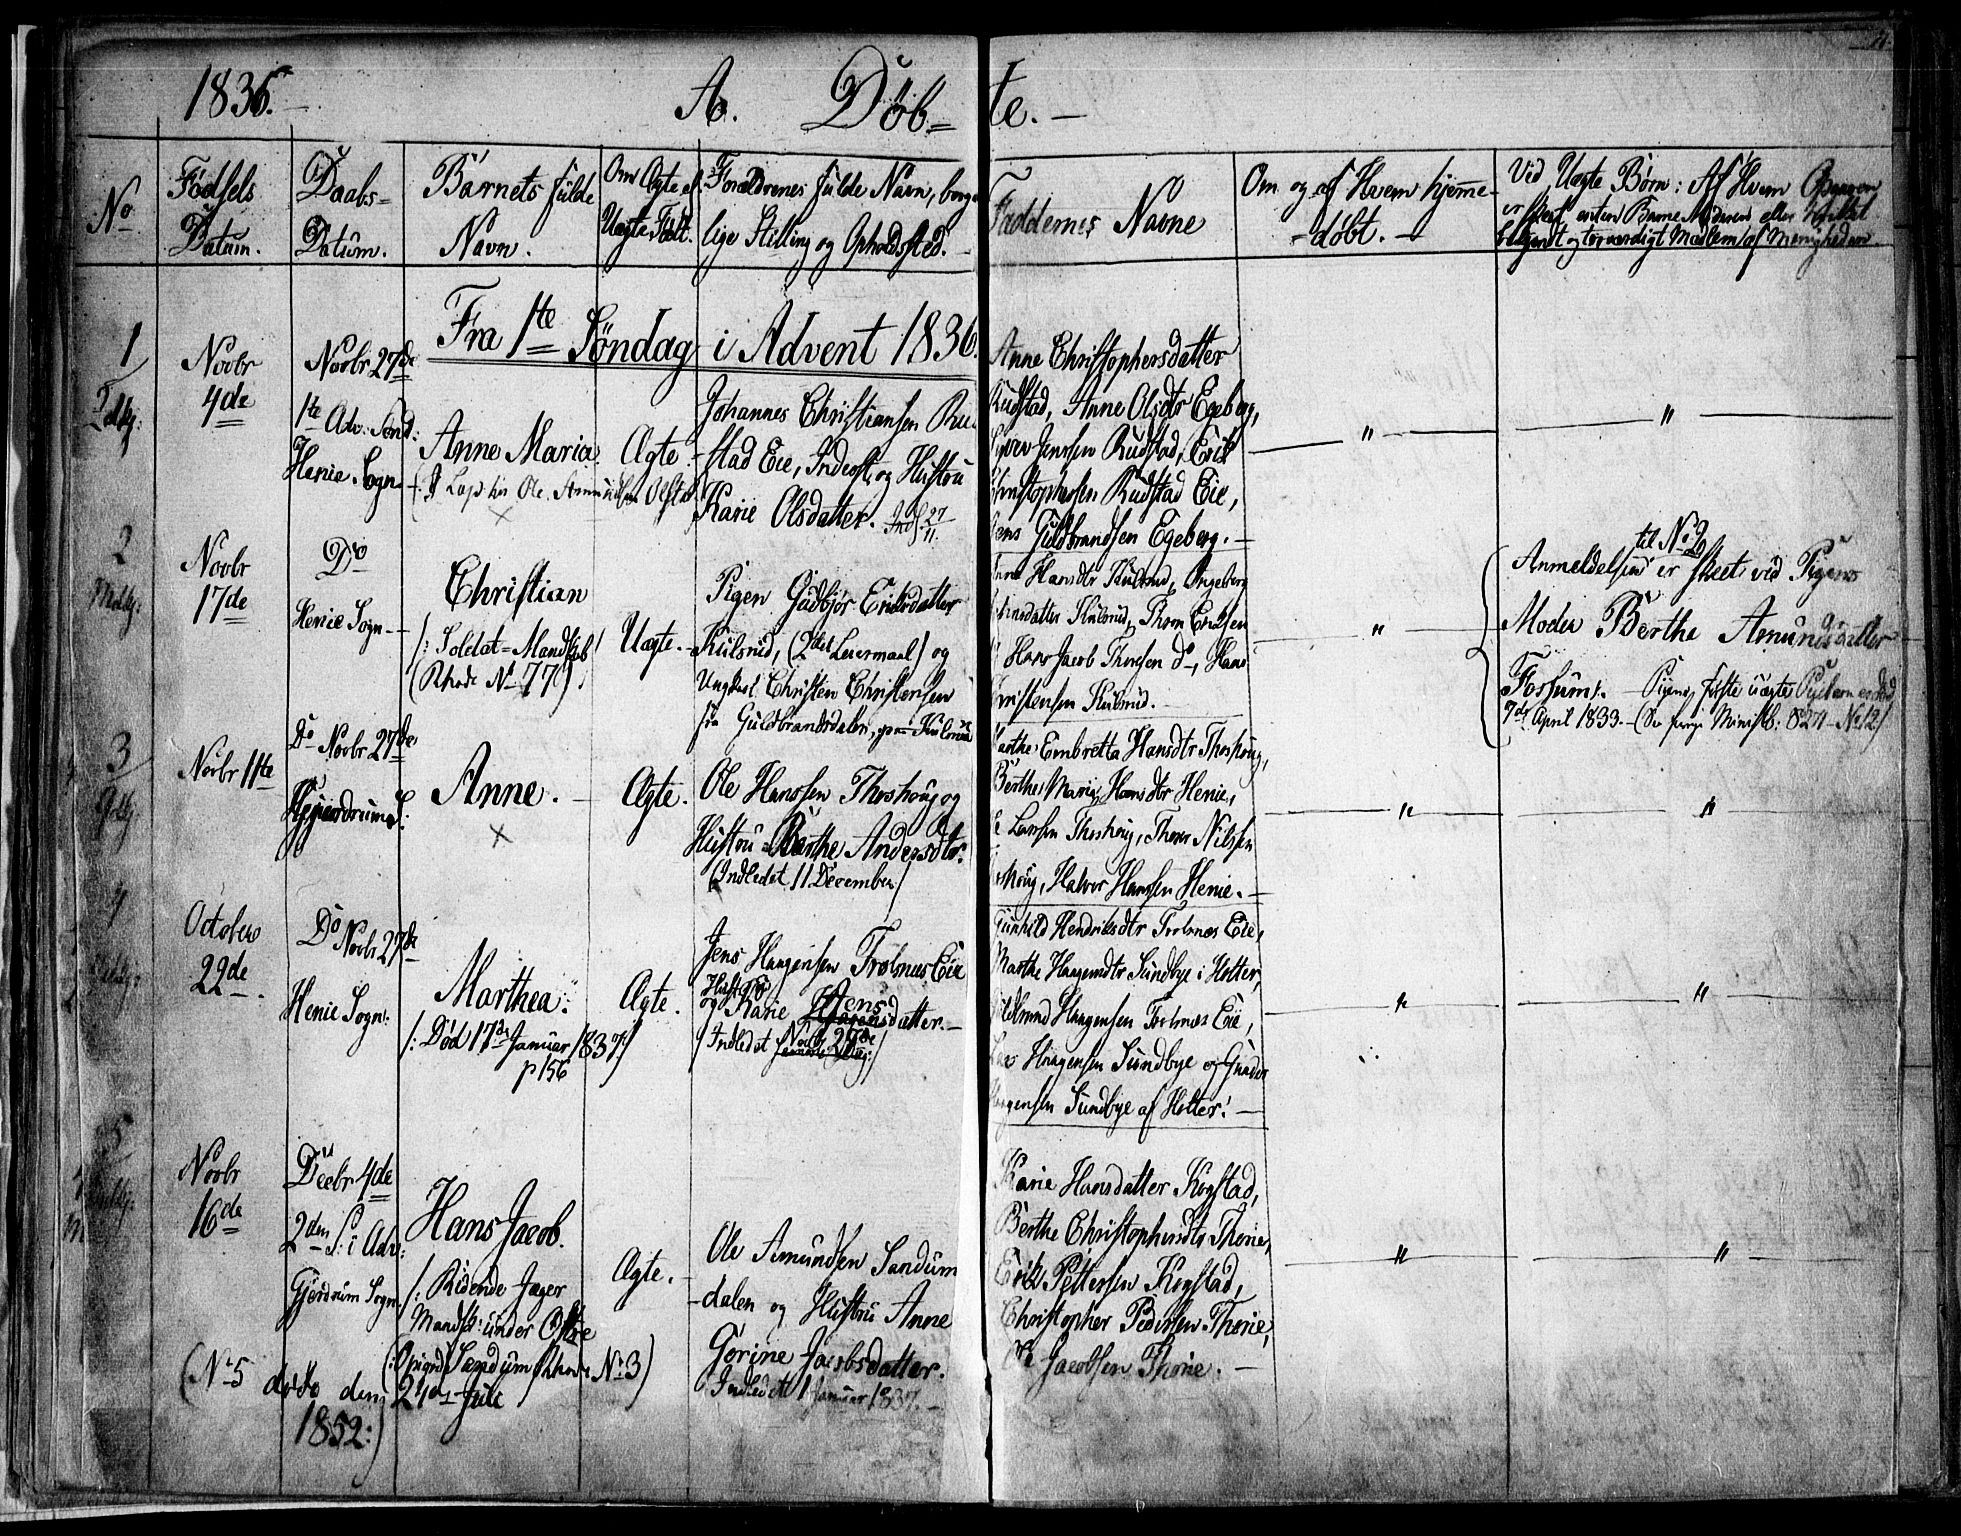 1836.
A. Döb=
te. —
No
Fødsels
Datum.
Daabs=
Datum.
Barnets fulde
Navn.
Om Ægte el.
Uægte Født.
Forældrenes fulde Navn, borger
lige Stilling og Opholdsted.
Faddernes Navne
Om og af Hvem hjemme-
- døbt. -
Vid Uægte Børn: Af Hvem Opgaven
er skeet enten Barne Moderen eller
bekjendt og troværdigt Medlem af Menigheden.
Fra 1te Söndag i Advent 1836.
1
Novbr
4de
Novbr 27de
1te Adv: Sönd:
Henie Sogn
Anne Maria.
Ægte.
Johannes Christiansen Ru
stad Eie, Inderst, og Hustru
Karie Olsdatter. Indl. 27/11.
Anne Christophersdatter
Rudstad, Anne Olsdtr Egeberg,
Jenssen Rudstad, Erik
Christophersen Rudstad Eie,
Jens Guldbrandsen Egeberg. —
"
"
2
Novbr
17de
Do
Henie Sogn
Christian
/: Soldat = Mandskb
(Rhode No 77)
Uægte.
Pigen Gudbjör Eriksdatter
Kulsrud, (2det Leiermaal) og
Ungkarl Christen Christensen
fra Guldbrandsdalen,
Hansdtr Kulsrud, Ingeborg
Kulsrud, Thom
Hans Jacob Do, Hans
Christensen Kulsrud.
"
Anmeldelsen til No 2 er skeet ved Pigens
Moder Berthe Amundsdatter
Fossum/. — Pigens første uægte
7de April 1833. — No 12)
3
Novbr 11te
Do Novbr 27de
Gjerdrum S:
Anne.
Ægte.
Ole Hanssen Thoshoug og
Hustru Berthe Andersdtr.
(Indledet 11 December)
Marthe Embretta Hansdtr Thoshoug,
Berthe Maria Hansdtr Henie,
Larssen Thoshoug, Thor Nilssen
Thoshoug, Halvor Hanssen Henie. —
"
"
4
October
22de
Do Novbr 27de
Henie Sogn:
Marthea.
/: Död 17de Januar 1837/
p 156
Ægte.
Jens Haagensen Trolnæs Eie
og Hustru Karie Jensdatter. —
/ Indledet Novbr 27de
Gunhild Hendriksdtr Trolnæs Eie,
Marthe Haagensdtr Sundbye i Holter,
Haagensen Trolnæs Eie,
Lars Haagensen Sundbye og
Haagensen Sundbye af Holter. —
"
"
5
Novbr
16de
Decbr 4de
2den S: i Adv:
Gjerdrum Sogn
Hans Jacob.
/: Ridende Jæger
Mandsk: under Østre
Sandum Rhode No 3)
Ægte.
Ole Amundsen Sandum
dalen og Hustru Anne
Görine Jacobsdatter.
Indledet 1 Januar 1837. —
Karie Hansdatter Kogstad,
Berthe Christophersdtr Thorie,
Erik Pettersen Kogstad,
Christopher Pedersen Thorie,
Ole Jacobsen Thorie. —
"
"
(No 5 døde den 24de Juli
1852:)